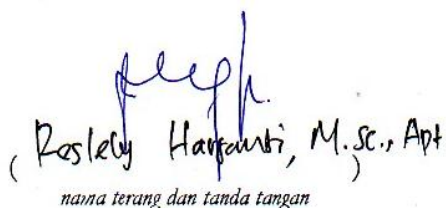 ( Reslely Harjanti, M.Sc., Apt )
nama terang dan tanda tangan